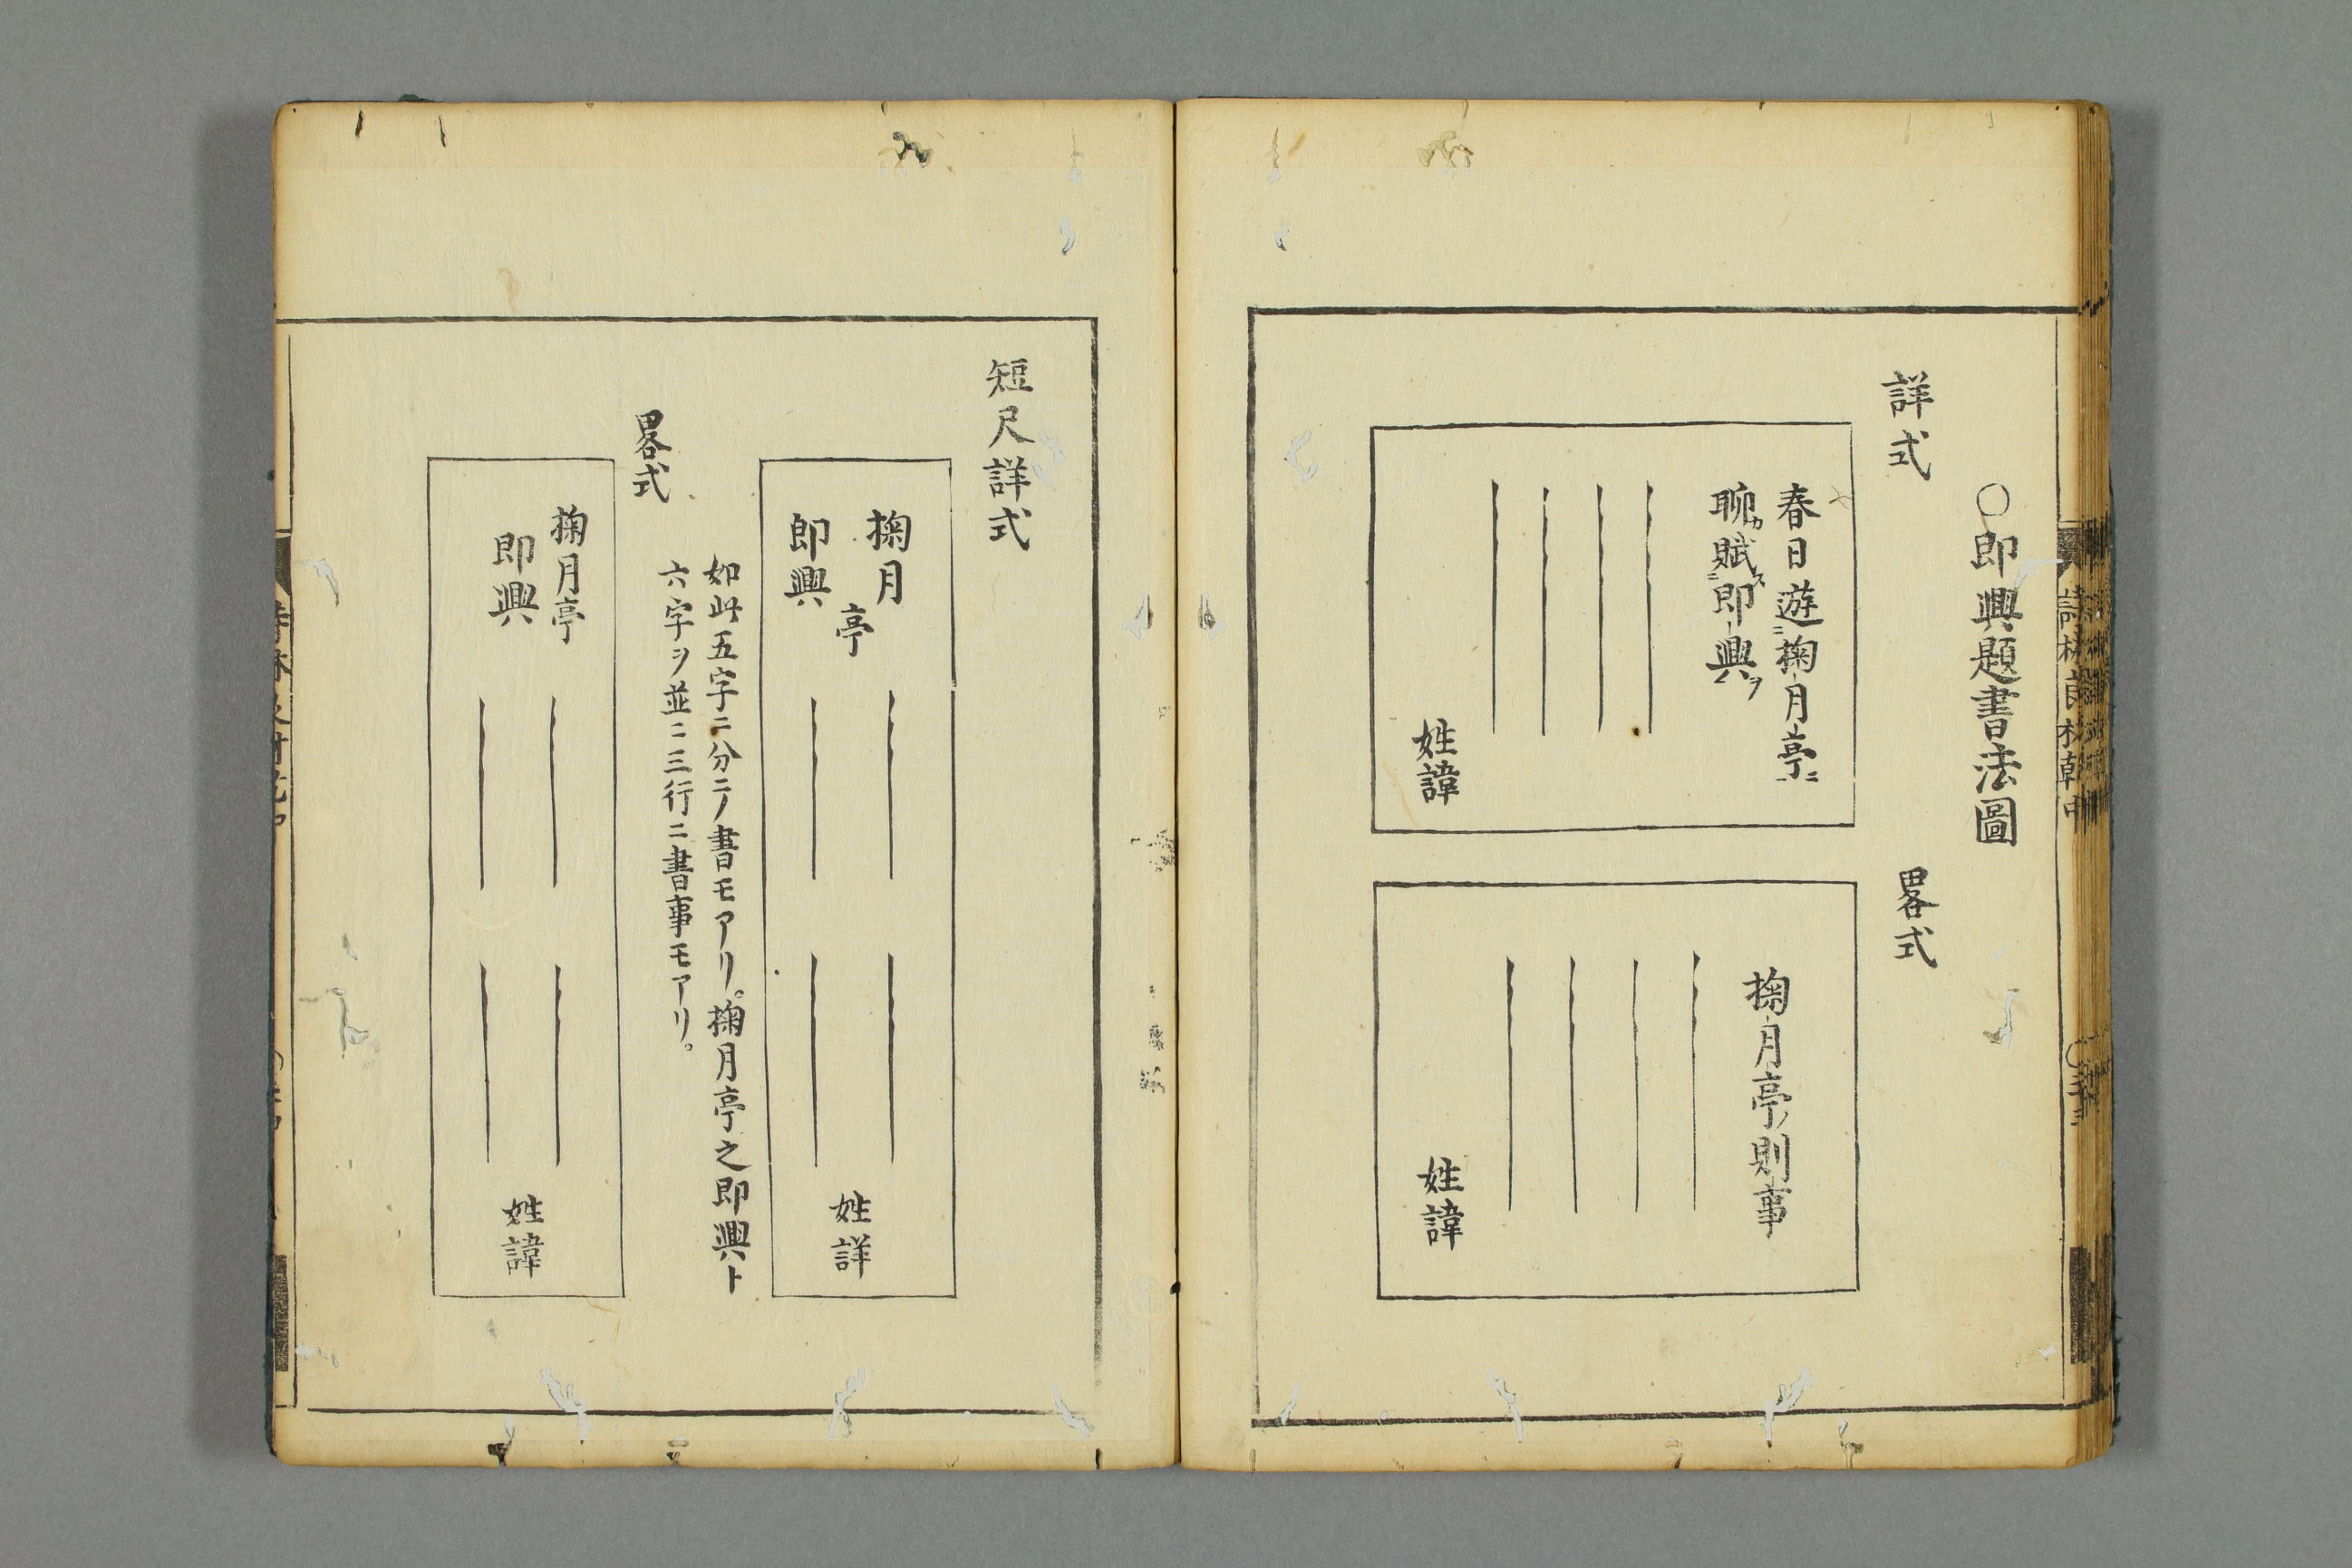 〇即興題書法圖
詳式
春日遊掬月亭
聊賦即興
姓諱
畧式
掬月亭ノ則事
姓諱
短尺詳式
掬月
亭
即興
姓詳
如此五字ニ分テ書モアリ。掬月亭之即興ト
六字ヲ並ニ三行ニ書事モアリ。
畧式
掬月亭
即興
姓諱